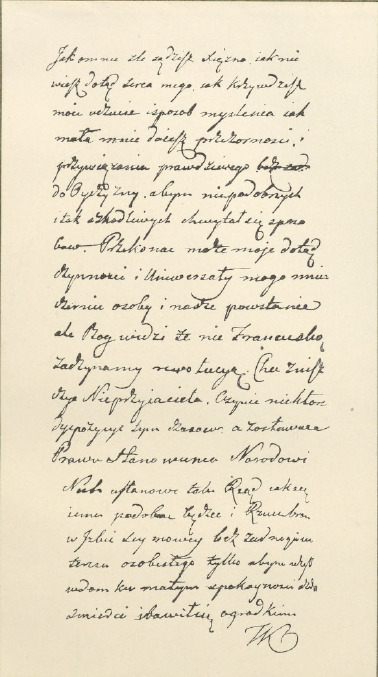 Jak o mnie źle sądzisz Xięzno, jak nie
wiesz dotąd serca mego, jak krzywdzisz
moie uczucie i sposob myslenia jak
mała mnie daiesz przezorności, i
przywiązania prawdziwego
do Oyczyzny, abym niepodobnych
i tak szkodliwych chwytał się spso
bow. Przekonać może moje dotąd
czynności i Uniwersały mogo
osoby i nasze powstanie
ale Bog widzi że nie Francuską
zaczynamy rewolucyą. Chcę znisz
czyć Nieprzyiaciela. Czynię niektore
dyspozycye tym czasowe, a zostawuię
Prawa stanowienia Narodowi
Niech ustanowi taki Rząd iaki się
iemu podobać będzie i
w Izbie Seymowey bez żadnego in
teressu osobistego tylko abym mógł
w domku małym spokoynosci do
smierci i bawić się ogrodkiem
TK